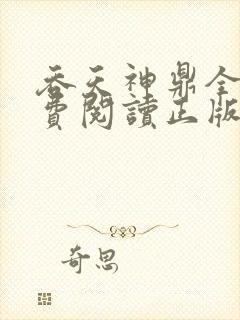 吞天神鼎全
費閱讀正版
奇思